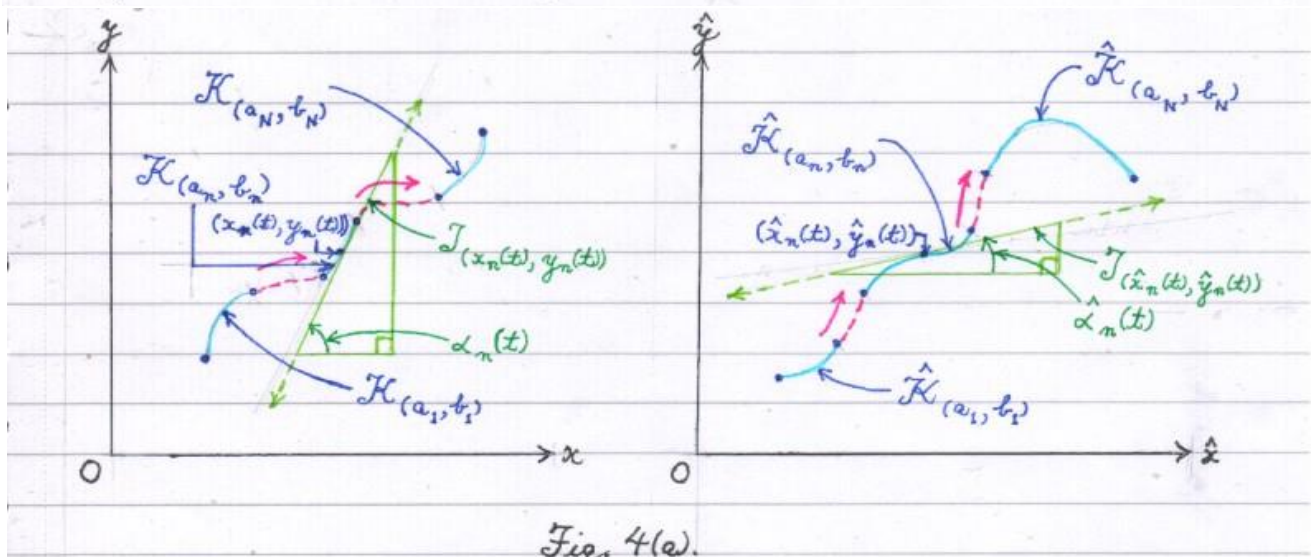 y
𝒦(a_N, b_N)
𝒦(a_n, b_n)
(x_n(t), y_n(t))
𝒯(x_n(t), y_n(t))
α_n(t)
𝒦(a_1, b_1)
O
x
ŷ
𝒦̂(a_N, b_N)
𝒦̂(a_n, b_n)
(x̂_n(t), ŷ_n(t))
𝒯(x̂_n(t), ŷ_n(t))
α̂_n(t)
𝒦̂(a_1, b_1)
O
x̂
Fig. 4(a).